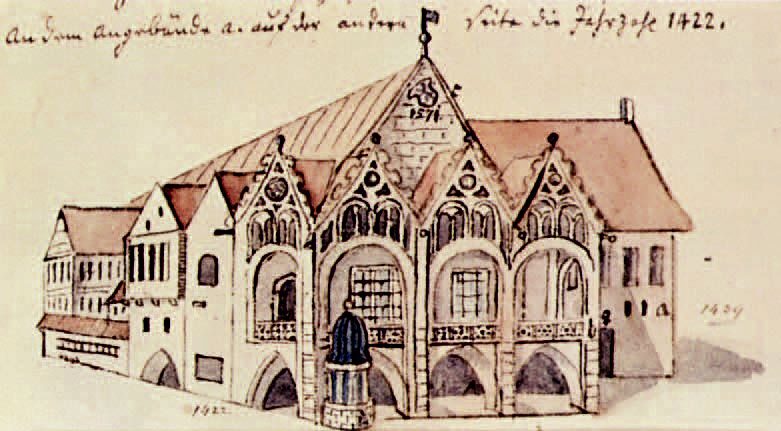 An dem Angebäude a. auf der andern Seite die Jahrzahl 1422.
1571
1422